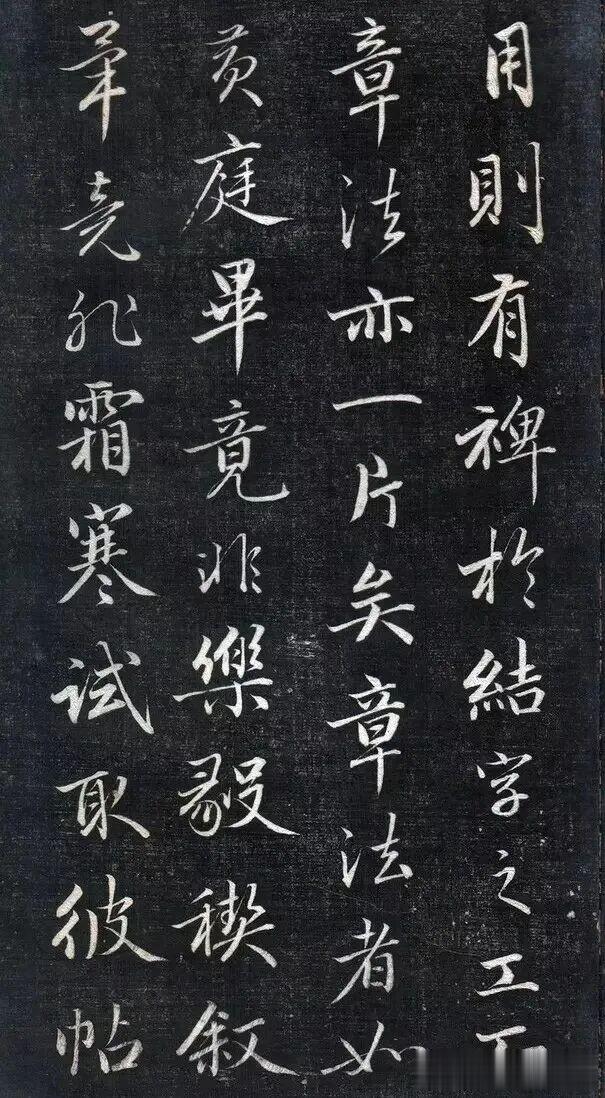 用則有裨於結字之工
章法亦一片矣章法者如
黄庭畢竟非樂毅稧叙
畢竟非霜寒試取彼帖